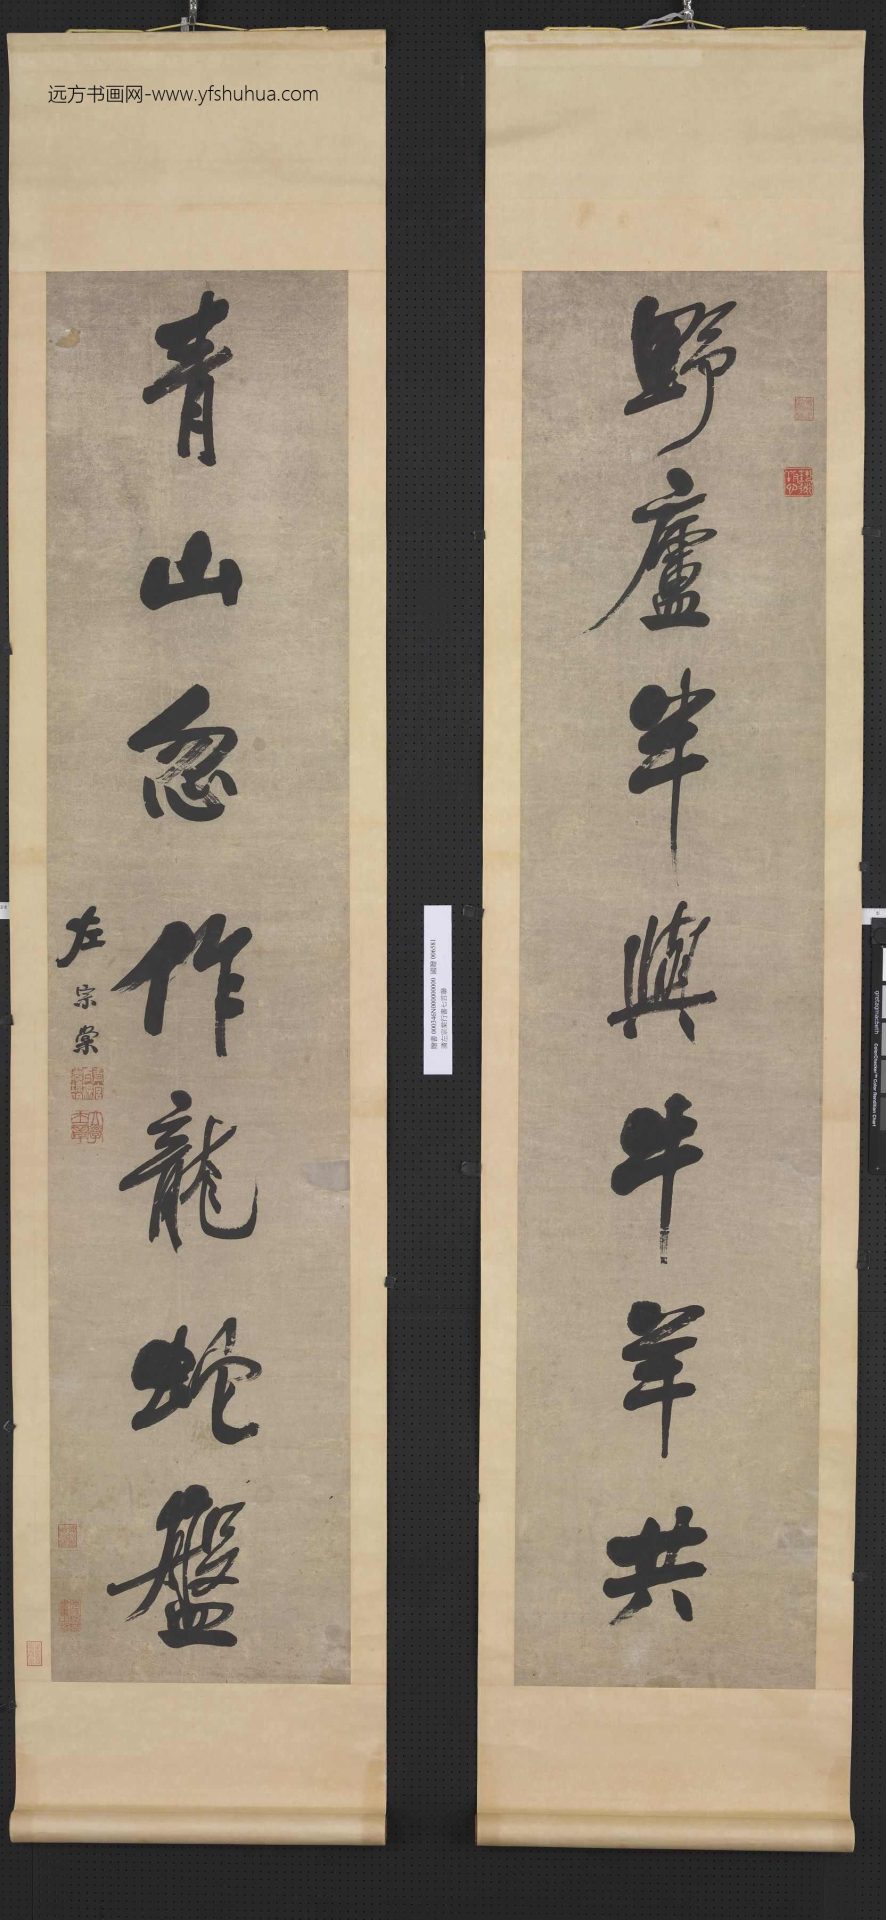 远方书画网-www.yfshuhua.com
野廬半與牛羊共
青山忽作龍蛇盤
左宗棠
gretagmacbeth
ColorChecker™ Color Rendition Chart